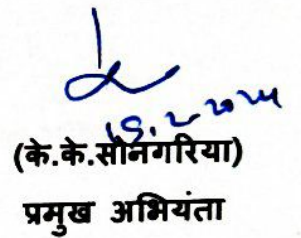 15.2.2024
(के.के.सोनगरिया)
प्रमुख अभियंता